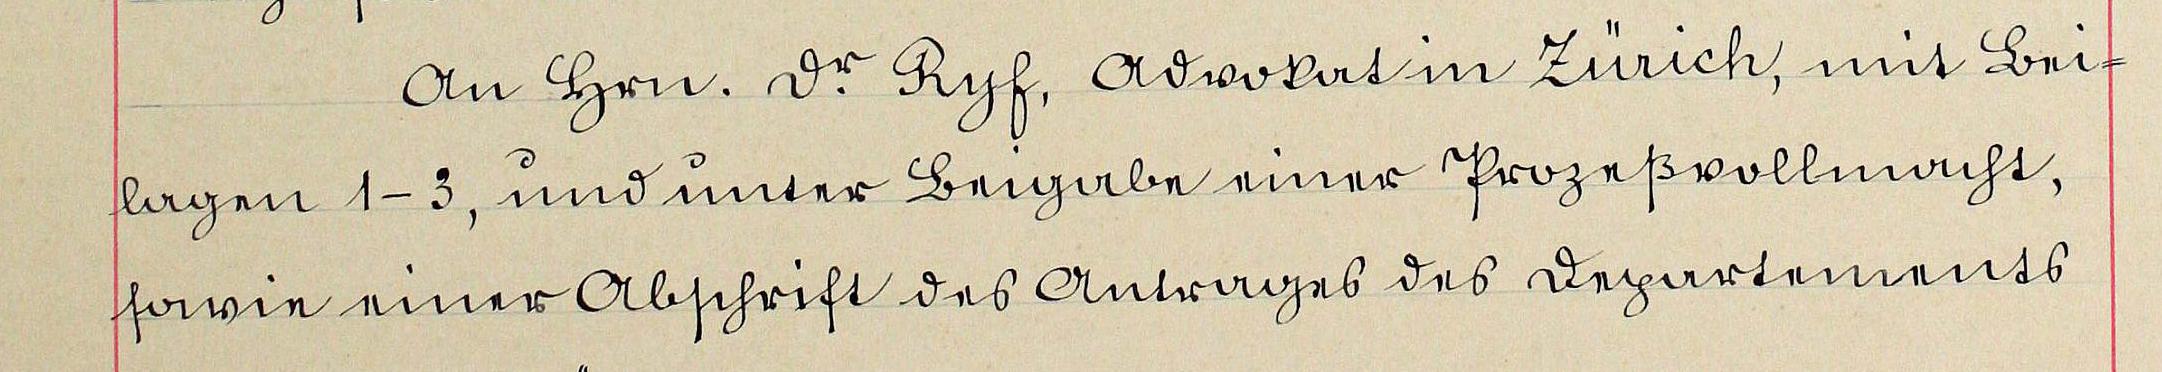 An Hrn. Dr. Ryf, Advokat in Zürich, mit Bei-
lagen 1-3, und unter Beigabe einer Prozeßvollmacht,
sowie einer Abschrift des Antrages des Departements